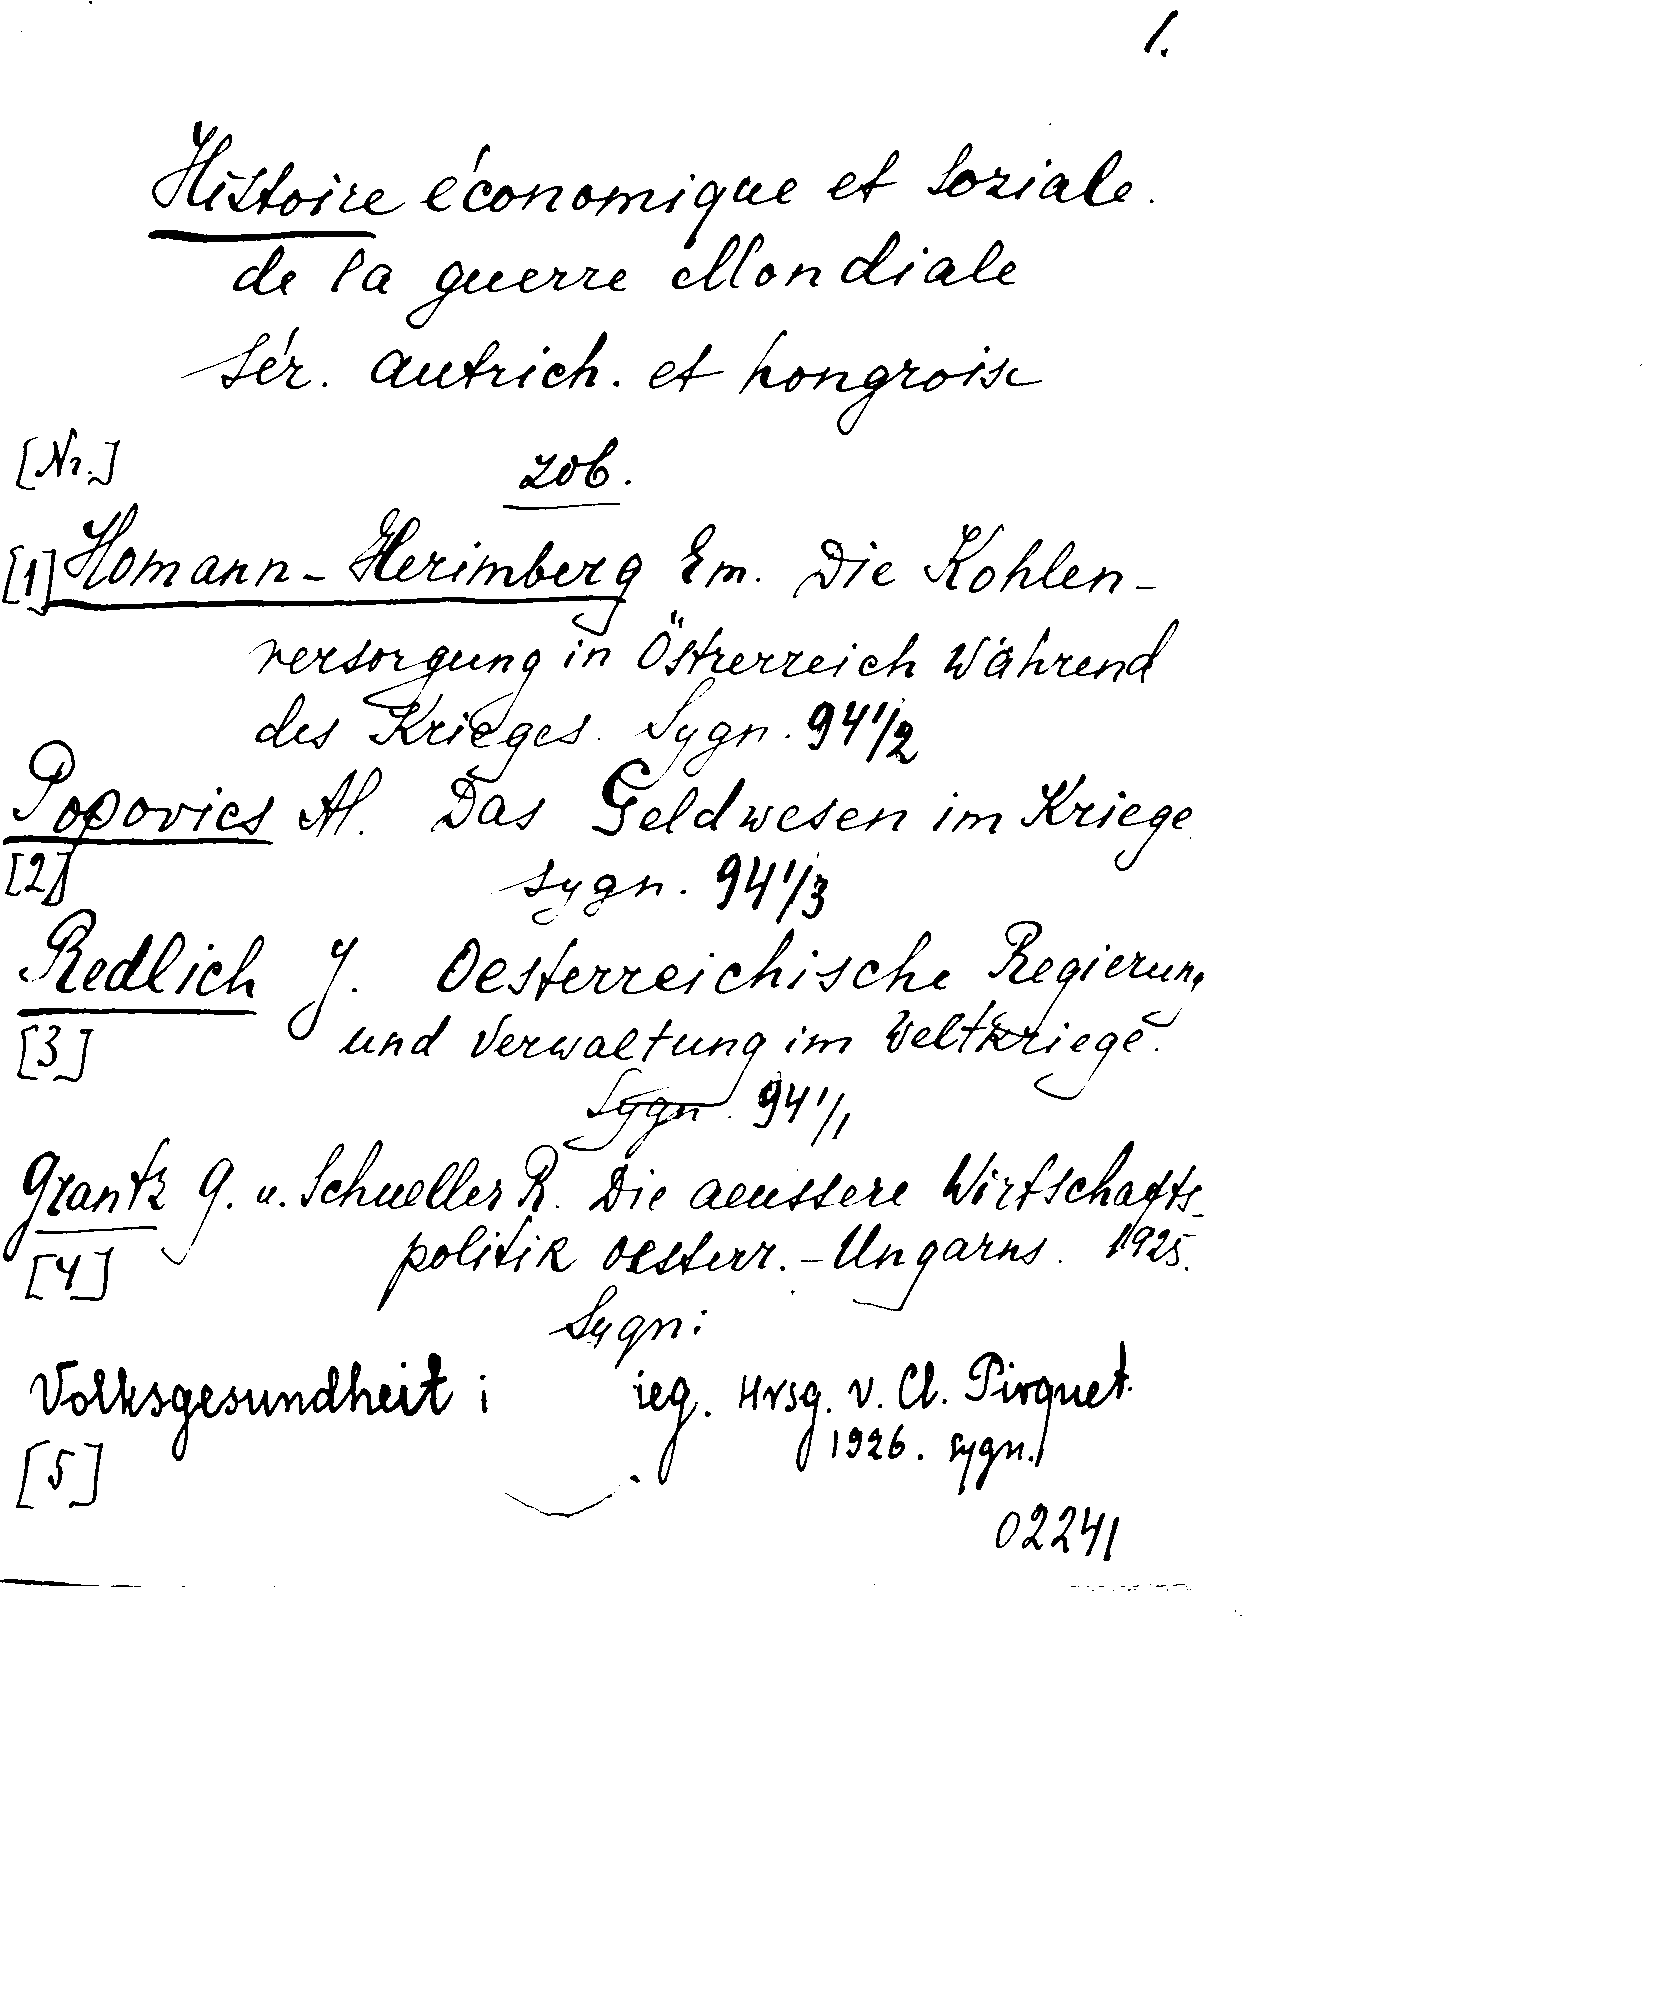 1.
Histoire économique et soziale.
de la guerre Mondiale
sér. autrich. et hongroise
[Nr.] zob.
[1] Homann-Herimberg Em. Die Kohlen-
versorgung in Östrerreich während
des Krieges. Sygn. 941/2
Popovics Al. Das Geldwesen im Kriege
[2] sygn. 941/3
Redlich J. Oesterreichische Regierung
[3] und Verwaltung im Weltkriege.
Sygn. 941/1
Grantz G. u. Schueller R. Die aeussere Wirtschafts-
[4] politik oesterr.-Ungarns. 1925.
Sygn:
Volksgesundheit i ieg. Hrsg. v. Cl. Pirquet.
[5] 1926. sygn.
02241